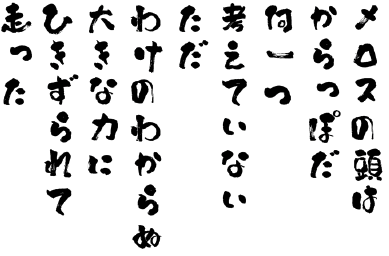 メロスの頭は
からっぽだ
何一つ
考えていない
ただ
わけのわからぬ
大きな力に
ひきずられて
走った